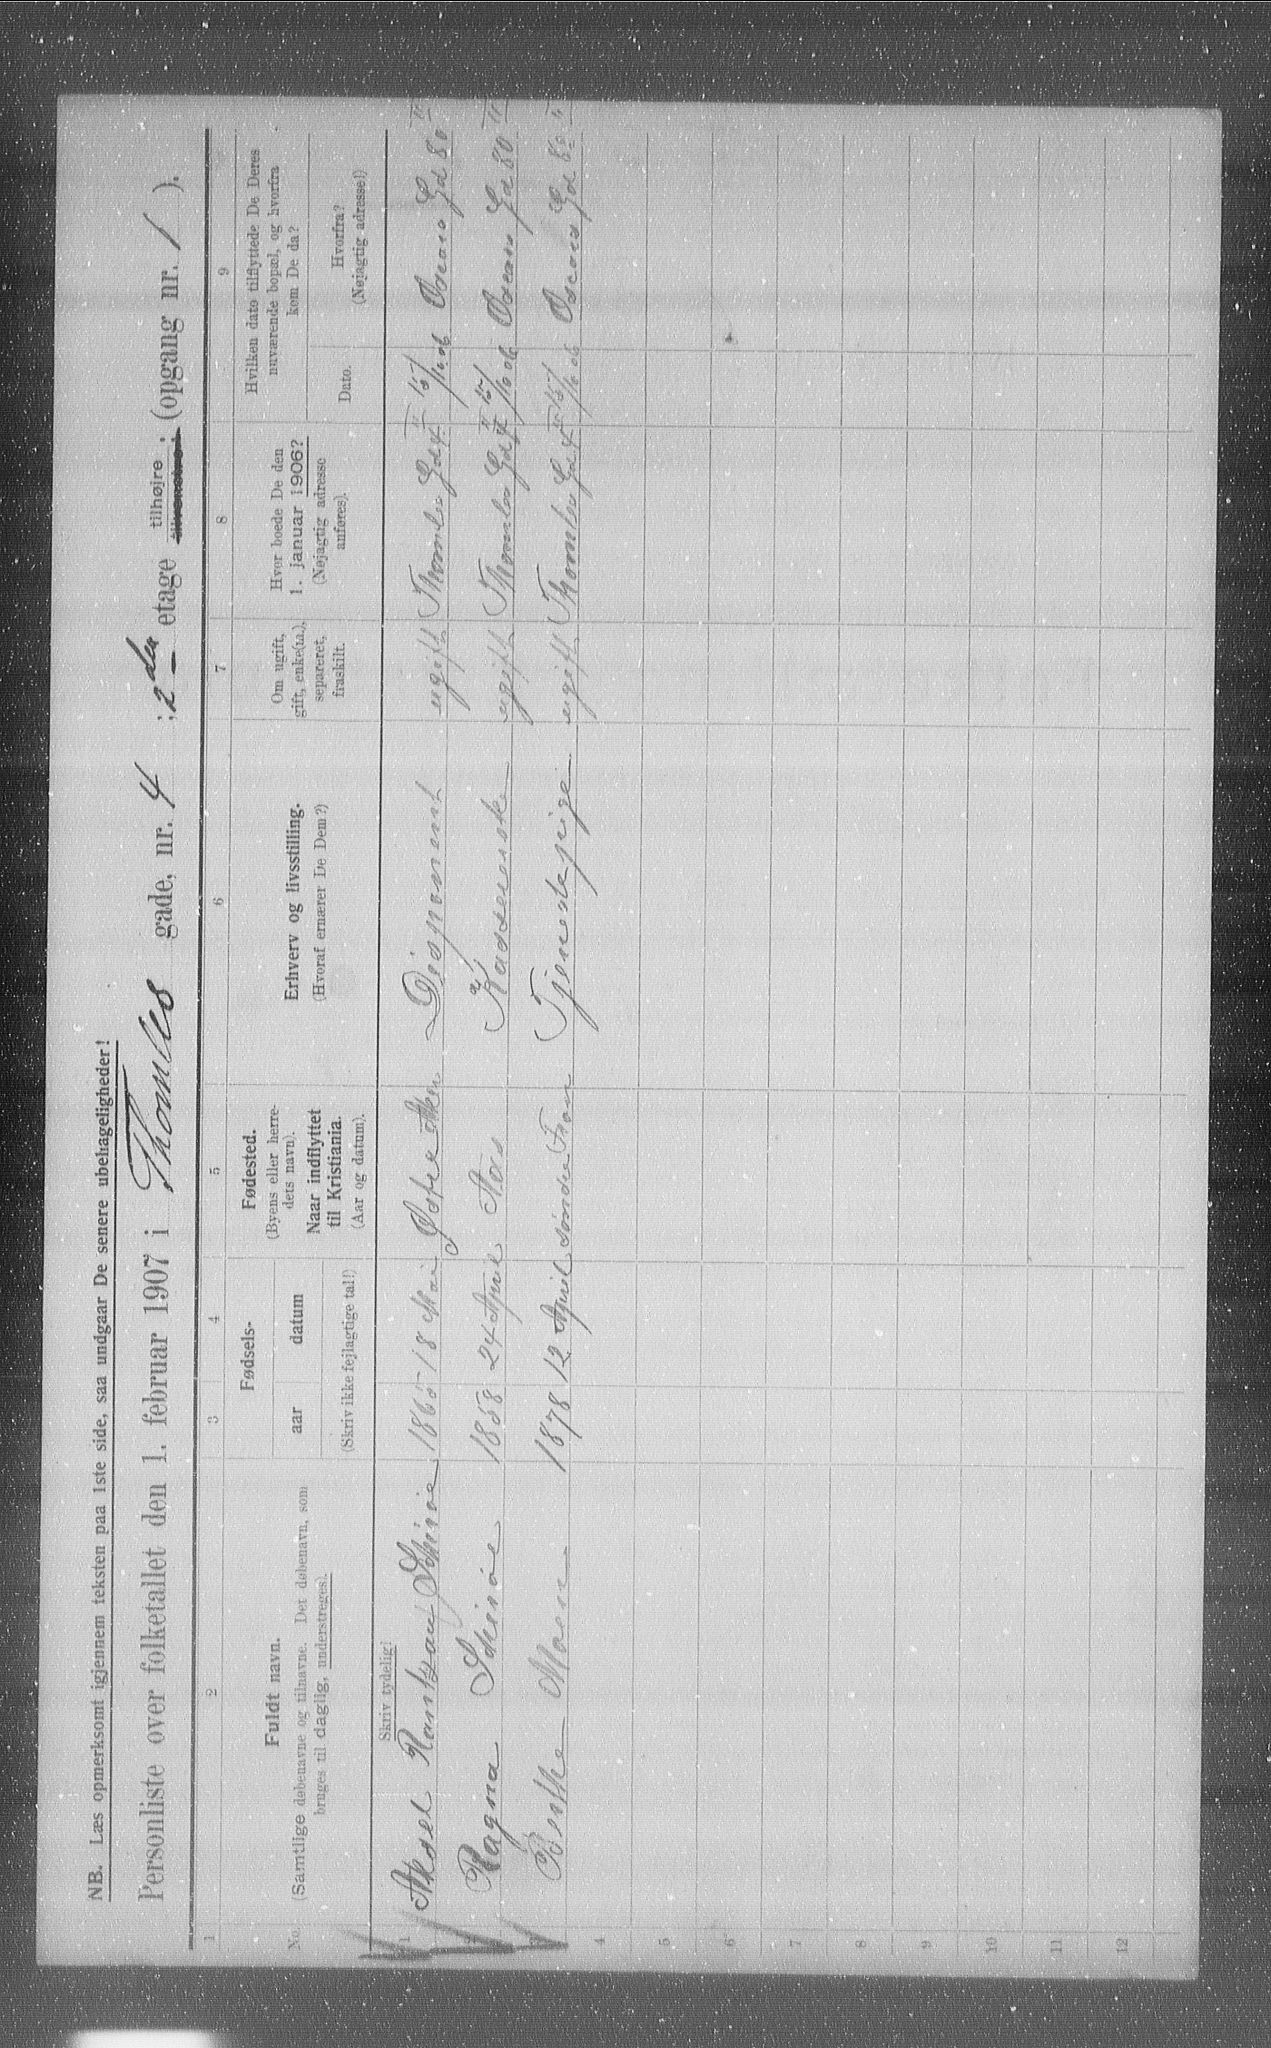 NB. Læs opmerksomt igjennem teksten paa 1ste side, saa undgaar De senere ubehageligheder!
Personliste over folketallet den 1. februar 1907 i Thomles gade, nr. 4 ; 2den etage tilhøjre ; tilvenstre ; (opgang nr. 1 ).
1 2 3 4 5 6 7 8 9
No.
Fuldt navn.
(Samtlige døbenavne og tilnavne. Det døbenavn, som
bruges til daglig, understreges).
Fødsels-
aar datum
(Skriv ikke fejlagtige tal!)
Fødested.
(Byens eller herre-
dets navn).
Naar indflyttet
til Kristiania.
(Aar og datum).
Erhverv og livsstilling.
(Hvoraf ernærer De Dem?)
Om ugift,
gift, enke(m.),
separeret,
fraskilt.
Hvor boede De den
1. januar 1906?
(Nøjagtig adresse
anføres).
Hvilken dato tilflyttede De Deres
nuværende bopæl, og hvorfra
kom De da?
Dato.
Hvorfra?
(Nøjagtig adresse!)
Skriv tydelig!
1 Aksel Rantzau Schirøe 1865 18 Mai Østre Aker Disponent ugift Thomles Gd 4 II 15/10 06 Oscars Gd 80 II
2 Ragna Schirøe 1858 24 April Aas Kassererske ugift Thomles Gd 4 II 15/10 06 Oscars Gd 80 II
3 Berthe Moen 1878 12 April Søndre Fron Tjenestepige ugift Thomles Gd 4 II 15/10 06 Oscars Gd 80 II
4
5
6
7
8
9
10
11
12